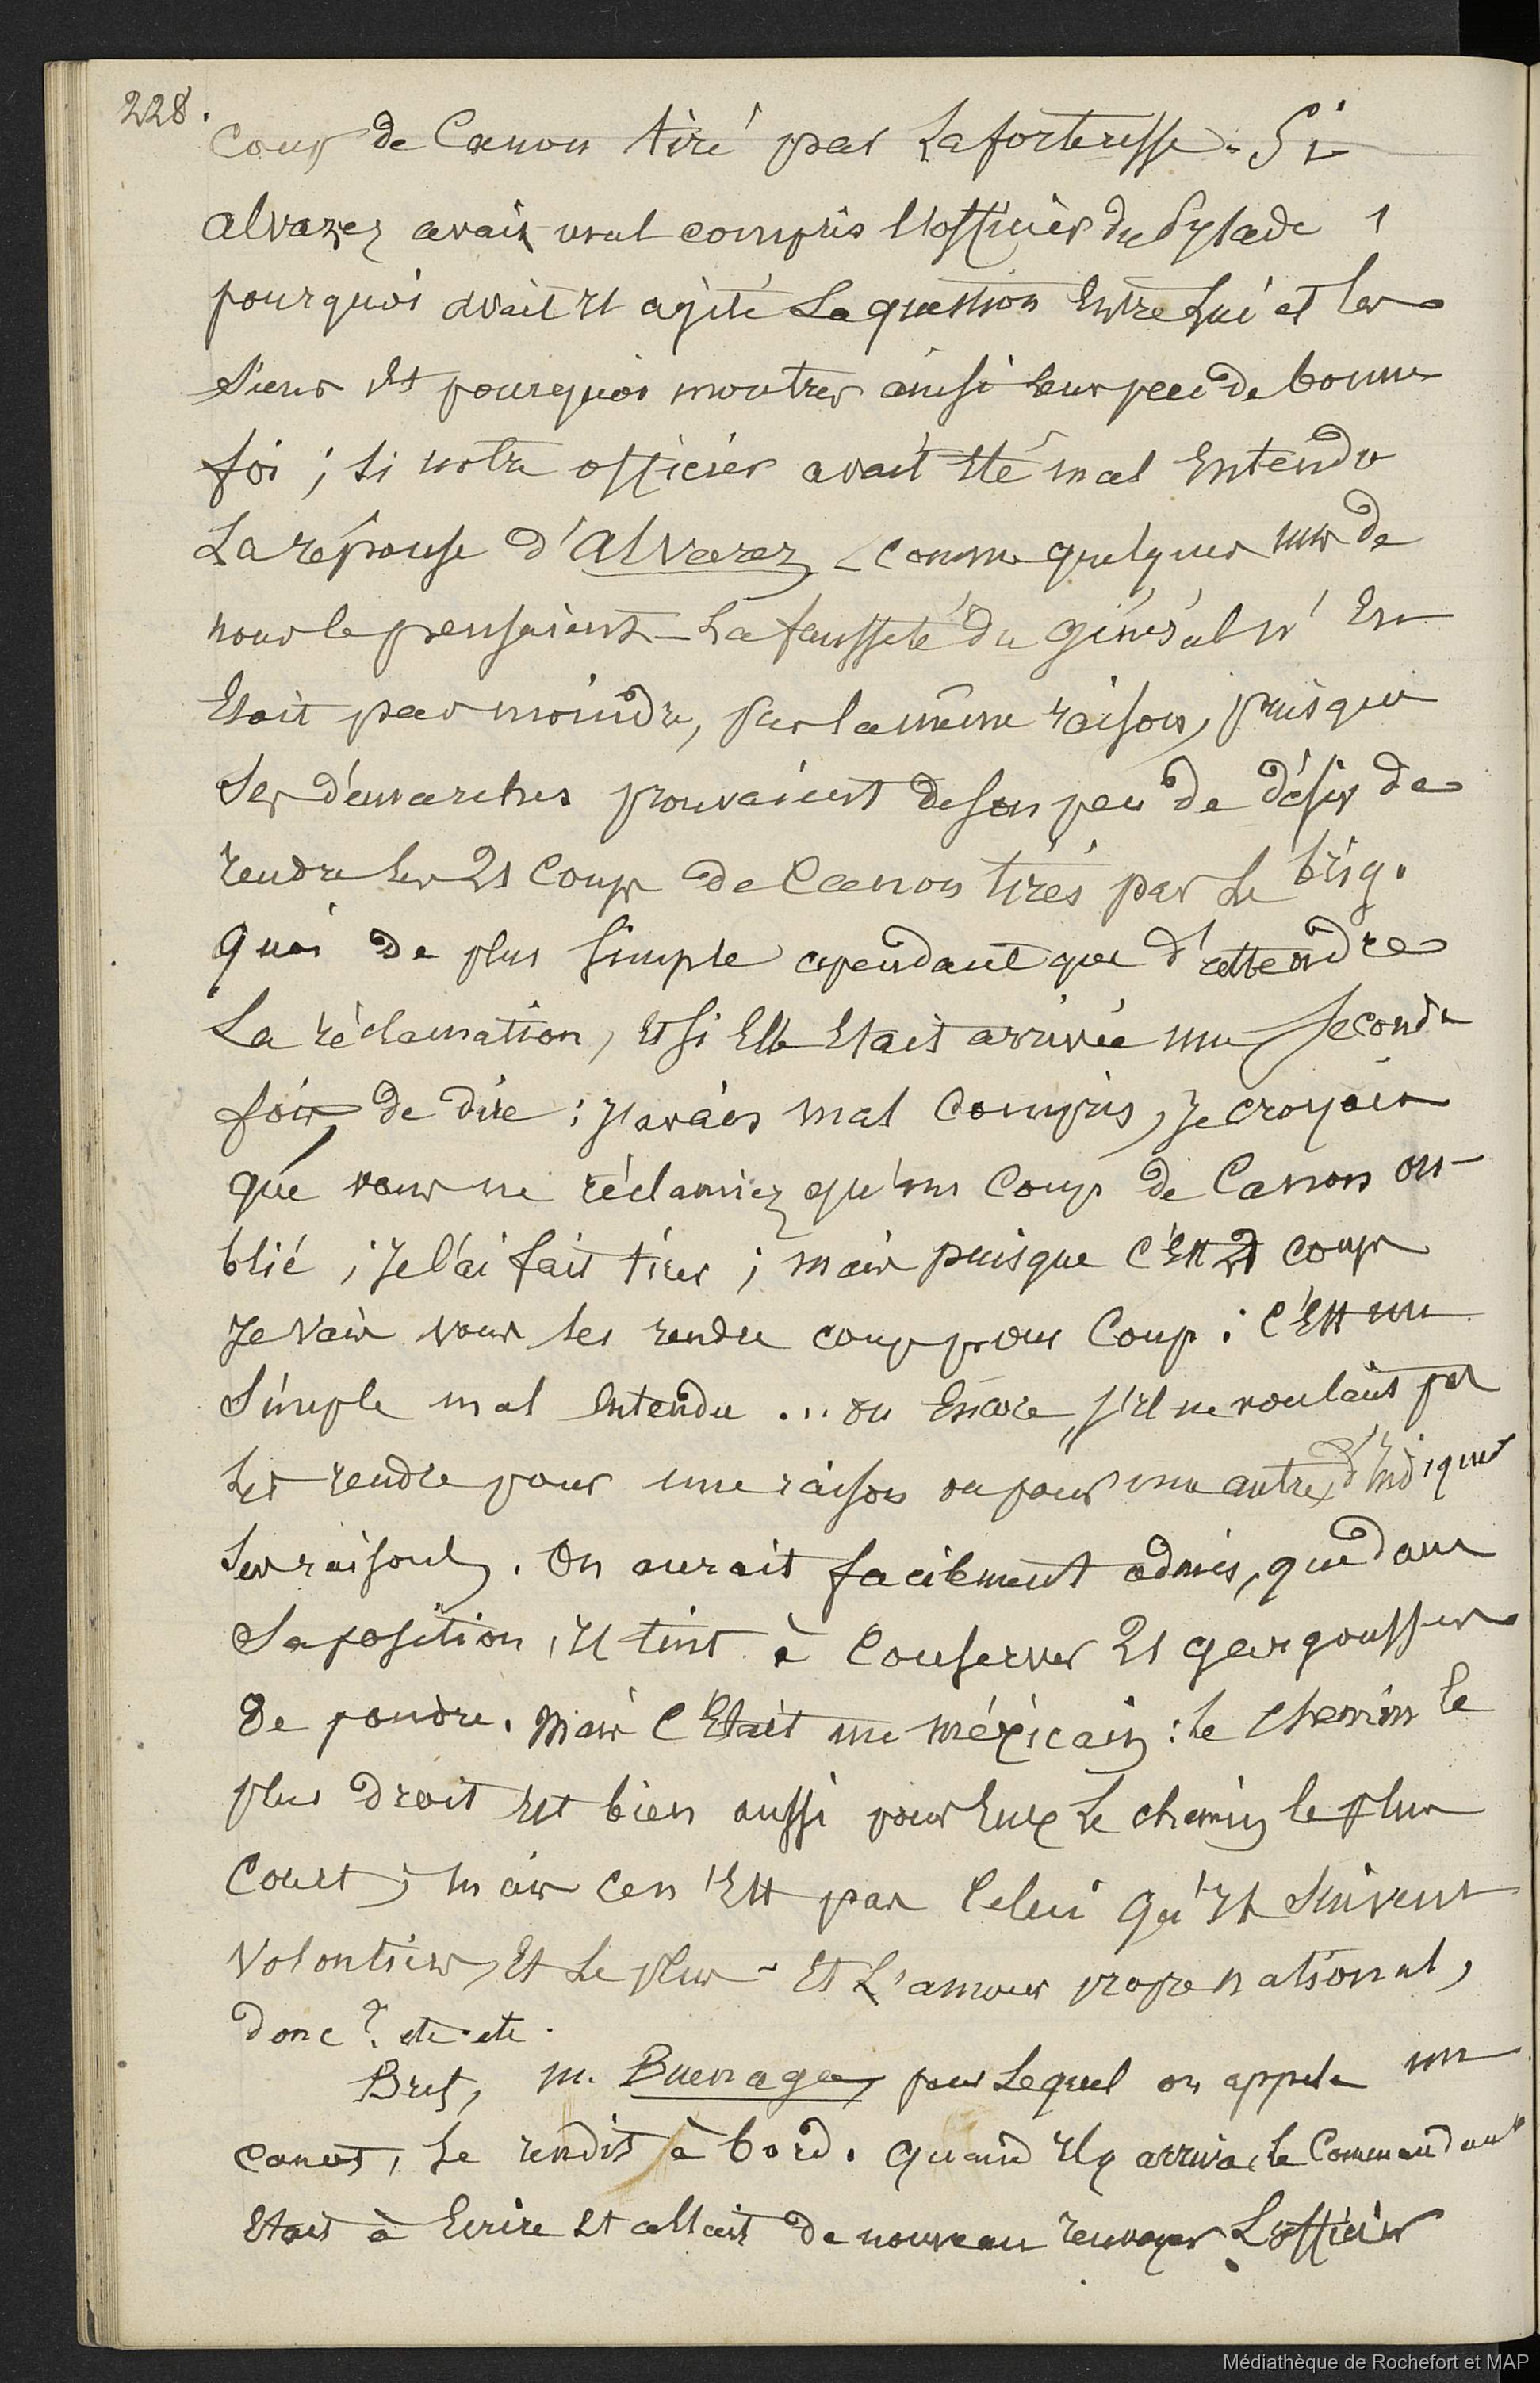 228.
coup de Canon tiré par la forteresse. Si
alvarez avait mal compris l'officier du Pylade,
pourquoi avait il agité la question Entre lui et les
siens Et pourquoi montrer ainsi leur peu de bonne
foi ; si notre officier avait Eté mal Entendu
La réponse d'Alvarez – comme quelques uns de
nous le pensaient – La fausseté du général n'En
Etait pas moindre, par la même raison, puisque
ses démarches prouvaient de son peu de désir de
rendre les 21 Coups de Canon tirés par le brig.
quoi de plus simple cependant que d'attendre
La réclamation, Et si Elle Etait arrivée une seconde
fois, de dire : J'avais mal Compris, Je croyais
que vous ne réclamiez qu'un Coup de Canon ou-
blié ; Je l'ai fait tirer ; mais puisque C'Est 21 coups
Je vais vous les rendre coup pour Coup : C'Est un
Simple mal Entendu ... ou Encore, s'il ne voulait pas
les rendre pour une raison ou pour une autre, d'Indiquer
ses raisons. On aurait facilement admis, que dans
Sa position, Il tint à Conserver 21 gargousses
de poudre. Mais C'Etait un méxicain : le chemin le
plus droit Est bien aussi pour Eux le chemin le plus
Court ; mais ce n'Est pas Celui qu'Ils suivent
Volontiers, Et le plus – Et L'amour propre national,
donc ? etc. etc.
Bref, M. Buenaga, pour lequel on appela un
canot, se rendit à bord. quand Il y arriva, le Commandant
Etait à Ecrire Et allait de nouveau renvoyer L'officier
Médiathèque de Rochefort et MAP